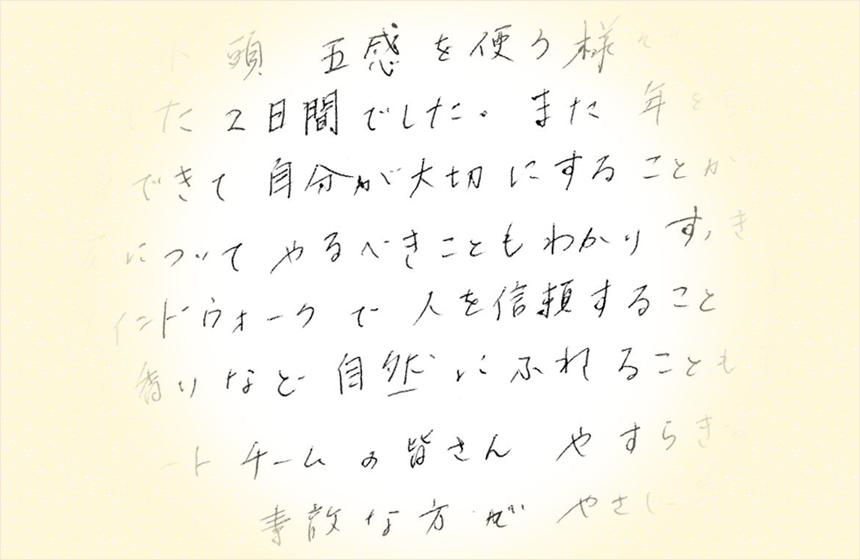 ト 頭 五感を使う様々
した2日間でした。また 年を
できて 自分が大切にすることが
についてやるべきこともわかりすっき
インドウォークで人を信頼すること
香りなど自然にふれることも
ート チームの皆さん やすらぎ
素敵な方が やさし